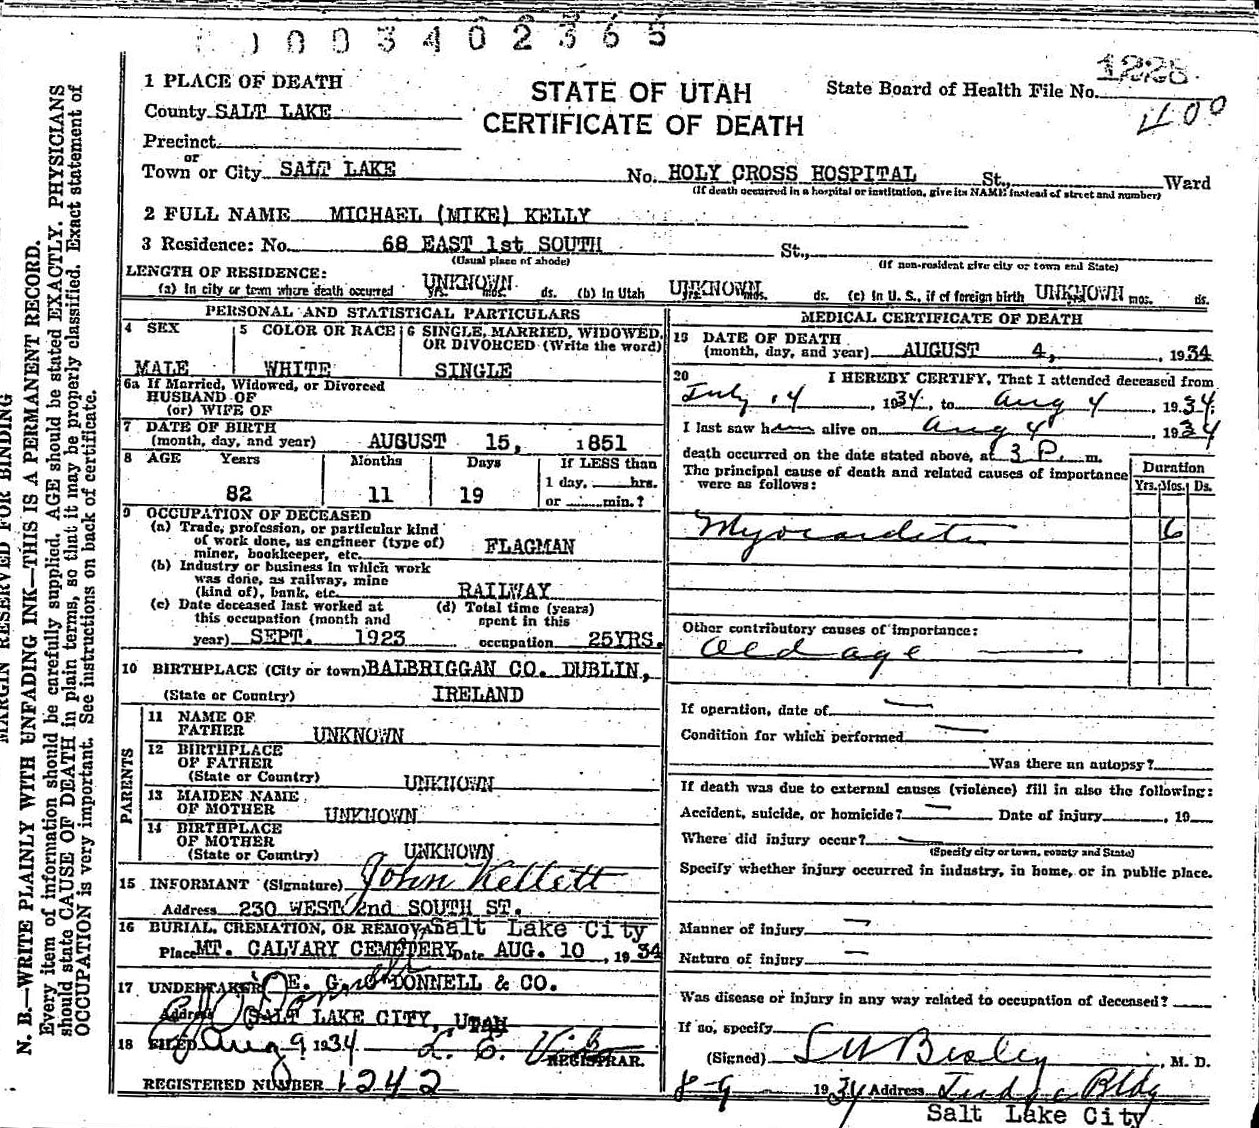 0003402365
1 PLACE OF DEATH
STATE OF UTAH
CERTIFICATE OF DEATH
State Board of Health File No. 1228
400
County SALT LAKE
Precinct
or
Town or City SALT LAKE No. HOLY CROSS HOSPITAL St., Ward
(If death occurred in a hospital or institution, give its NAME instead of street and number)
2 FULL NAME MICHAEL (MIKE) KELLY
3 Residence: No. 68 EAST 1st SOUTH St.,
(Usual place of abode) (If non-resident give city or town and State)
LENGTH OF RESIDENCE:
(a) In city or town where death occurred UNKNOWN yrs. mos. ds. (b) In Utah UNKNOWN yrs. mos. ds. (c) In U. S., if of foreign birth UNKNOWN mos. ds.
PERSONAL AND STATISTICAL PARTICULARS
4 SEX 5 COLOR OR RACE 6 SINGLE, MARRIED, WIDOWED, OR DIVORCED (Write the word)
MALE WHITE SINGLE
6a If Married, Widowed, or Divorced
HUSBAND OF
(or) WIFE OF
7 DATE OF BIRTH
(month, day, and year) AUGUST 15, 1851
8 AGE Years Months Days If LESS than
1 day, hrs.
82 11 19 or min.?
9 OCCUPATION OF DECEASED
(a) Trade, profession, or particular kind
of work done, as engineer (type of)
miner, bookkeeper, etc. FLAGMAN
(b) Industry or business in which work
was done, as railway, mine
(kind of), bank, etc. RAILWAY
(c) Date deceased last worked at
this occupation (month and
year) SEPT. 1923
(d) Total time (years)
spent in this
occupation 25YRS.
10 BIRTHPLACE (City or town) BALBRIGGAN CO. DUBLIN,
(State or Country) IRELAND
PARENTS
11 NAME OF
FATHER UNKNOWN
12 BIRTHPLACE
OF FATHER
(State or Country) UNKNOWN
13 MAIDEN NAME
OF MOTHER UNKNOWN
14 BIRTHPLACE
OF MOTHER
(State or Country) UNKNOWN
15 INFORMANT (Signature) John Kellett
Address 230 WEST 2nd SOUTH ST.
16 BURIAL, CREMATION, OR REMOVAL Salt Lake City
Place MT. CALVARY CEMETERY Date AUG. 10, 1934
17 UNDERTAKER E. G. O'DONNELL & CO.
Address SALT LAKE CITY, UTAH
18 FILED Aug 9 1934
REGISTRAR.
REGISTERED NUMBER 1242
MEDICAL CERTIFICATE OF DEATH
DATE OF DEATH
(month, day, and year) AUGUST 4, 1934
20 I HEREBY CERTIFY, That I attended deceased from
July 14, 1934, to Aug 4, 1934.
I last saw him alive on Aug 4 1934
death occurred on the date stated above, at 3 P. m.
The principal cause of death and related causes of importance
were as follows:
Duration
Yrs. Mos. Ds.
Myocarditis 6
Other contributory causes of importance:
Old age
If operation, date of
Condition for which performed
Was there an autopsy?
If death was due to external causes (violence) fill in also the following:
Accident, suicide, or homicide? Date of injury , 19
Where did injury occur?
(Specify city or town, county and State)
Specify whether injury occurred in industry, in home, or in public place.
Manner of injury
Nature of injury
Was disease or injury in any way related to occupation of deceased?
If so, specify
(Signed) , M. D.
8-9 1934 Address Judge Bldg
Salt Lake City
MARGIN RESERVED FOR BINDING
N. B.—WRITE PLAINLY WITH UNFADING INK—THIS IS A PERMANENT RECORD.
Every item of information should be carefully supplied. AGE should be stated EXACTLY. PHYSICIANS
should state CAUSE OF DEATH in plain terms, so that it may be properly classified. Exact statement of
OCCUPATION is very important. See instructions on back of certificate.